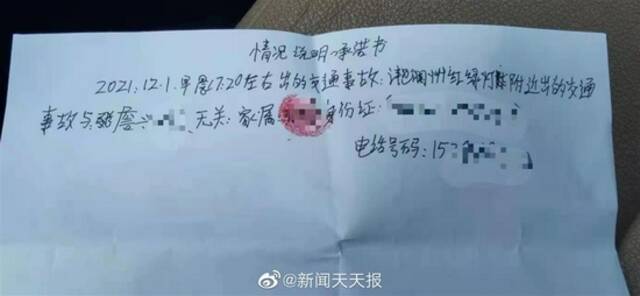 情况说明承诺书
2021.12.1.早晨7.20左右出的交通事故.湘烟州红绿灯附近出的交通
事故与 无关.家属 身份证:
电话号码:15
@新闻天天报